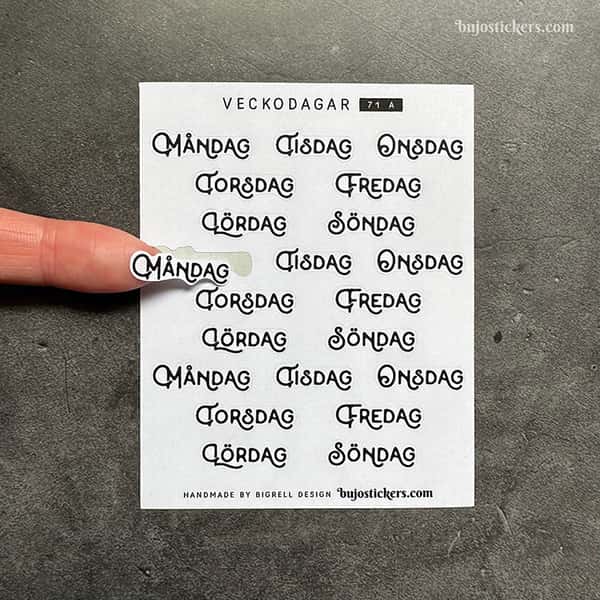 bujostickers.com
VECKODAGAR 71 A
MÅNDAG TISDAG ONSDAG
TORSDAG FREDAG
LÖRDAG SÖNDAG
MÅNDAG TISDAG ONSDAG
TORSDAG FREDAG
LÖRDAG SÖNDAG
MÅNDAG TISDAG ONSDAG
TORSDAG FREDAG
LÖRDAG SÖNDAG
HANDMADE BY BIGRELL DESIGN bujostickers.com